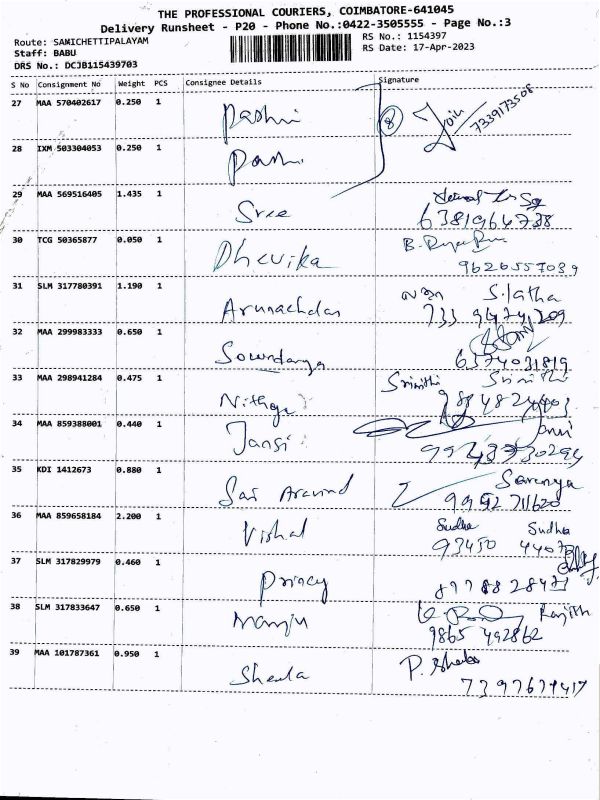 THE PROFESSIONAL COURIERS, COIMBATORE-641045
Delivery Runsheet - P20 - Phone No.:0422-3505555 - Page No.:3
Route: SAMICHETTIPALAYAM
RS No.: 1154397
Staff: BABU
RS Date: 17-Apr-2023
DRS No.: DCJB115439703
S No Consignment No Weight PCS Consignee Details Signature
27 MAA 570402617 0.250 1 8 7339173508
28 IXM 503304053 0.250 1
29 MAA 569516405 1.435 1 Sree
6381964738
30 TCG 50365877 0.050 1 Dhevika
9626557039
31 SLM 317780391 1.190 1 S. latha
32 MAA 299983333 0.650 1 Sowndarya
6374031819
33 MAA 298941284 0.475 1 Nithya Srinithi
34 MAA 859388001 0.440 1 Jansi
35 KDI 1412673 0.880 1 Sai Aravind Saranya
36 MAA 859658184 2.200 1 Vishal Sudha Sudha
93450
37 SLM 317829979 0.460 1 Princy
38 SLM 317833647 0.650 1 Manju Ranjith
9865 492862
39 MAA 101787361 0.950 1 Sheela